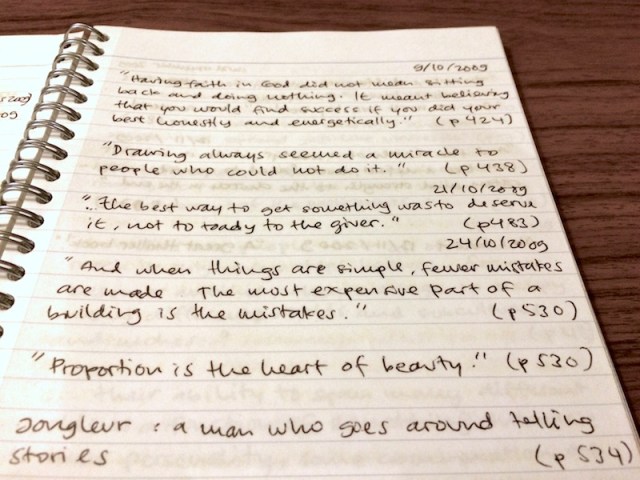 9/10/2009
"Having faith in God did not mean sitting
back and doing nothing. It meant believing
that you would find success if you did your
best honestly and energetically." (p 424)
"Drawing always seemed a miracle to
people who could not do it." (p 438)
21/10/2009
"...the best way to get something was to deserve
it, not to toady to the giver." (p 483)
24/10/2009
"And when things are simple, fewer mistakes
are made The most expensive part of a
building is the mistakes." (p 530)
"Proportion is the heart of beauty." (p 530)
Jongleur : a man who goes around telling
stories (p 534)